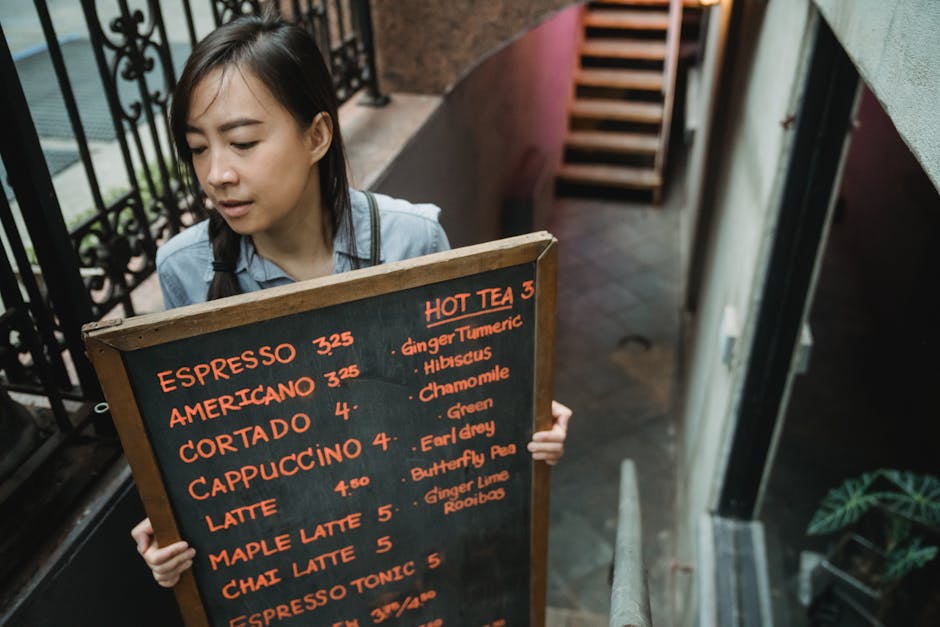 ESPRESSO 3.25
AMERICANO 3.25
CORTADO 4.
CAPPUCCINO 4.
LATTE 4.50
MAPLE LATTE 5
CHAI LATTE 5
ESPRESSO TONIC 5
3.75/4.50
HOT TEA 3
· Ginger Turmeric
· Hibiscus
· Chamomile
· Green
· Earl Grey
· Butterfly Pea
· Ginger Lime
Rooibos